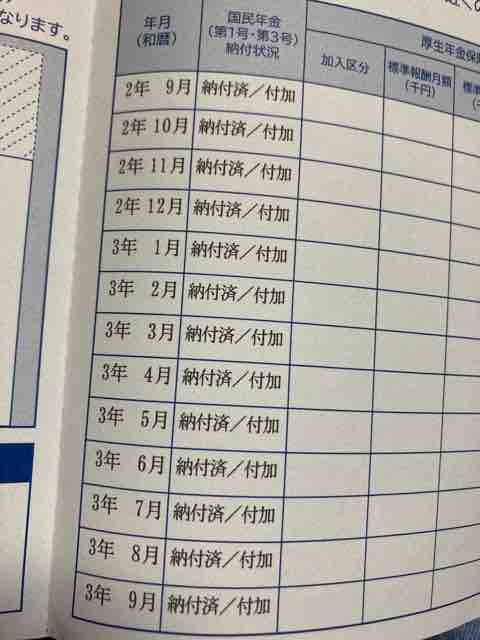 なります。
年月
(和暦)
国民年金
(第1号・第3号)
納付状況
加入区分
標準報酬月額
(千円)
2年 9月 納付済/付加
2年 10月 納付済/付加
2年 11月 納付済/付加
2年 12月 納付済/付加
3年 1月 納付済/付加
3年 2月 納付済/付加
3年 3月 納付済/付加
3年 4月 納付済/付加
3年 5月 納付済/付加
3年 6月 納付済/付加
3年 7月 納付済/付加
3年 8月 納付済/付加
3年 9月 納付済/付加